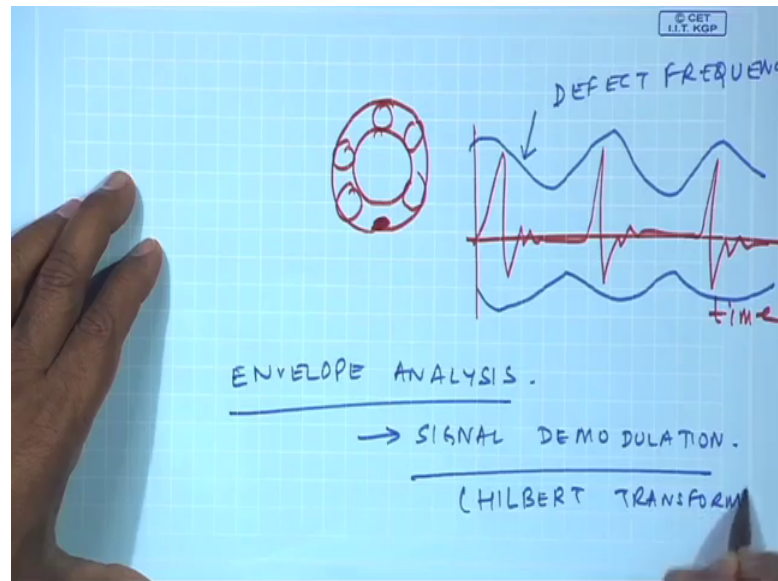 © CET
I.I.T. KGP
DEFECT FREQUENC
time
ENVELOPE ANALYSIS.
→ SIGNAL DEMODULATION.
(HILBERT TRANSFORM